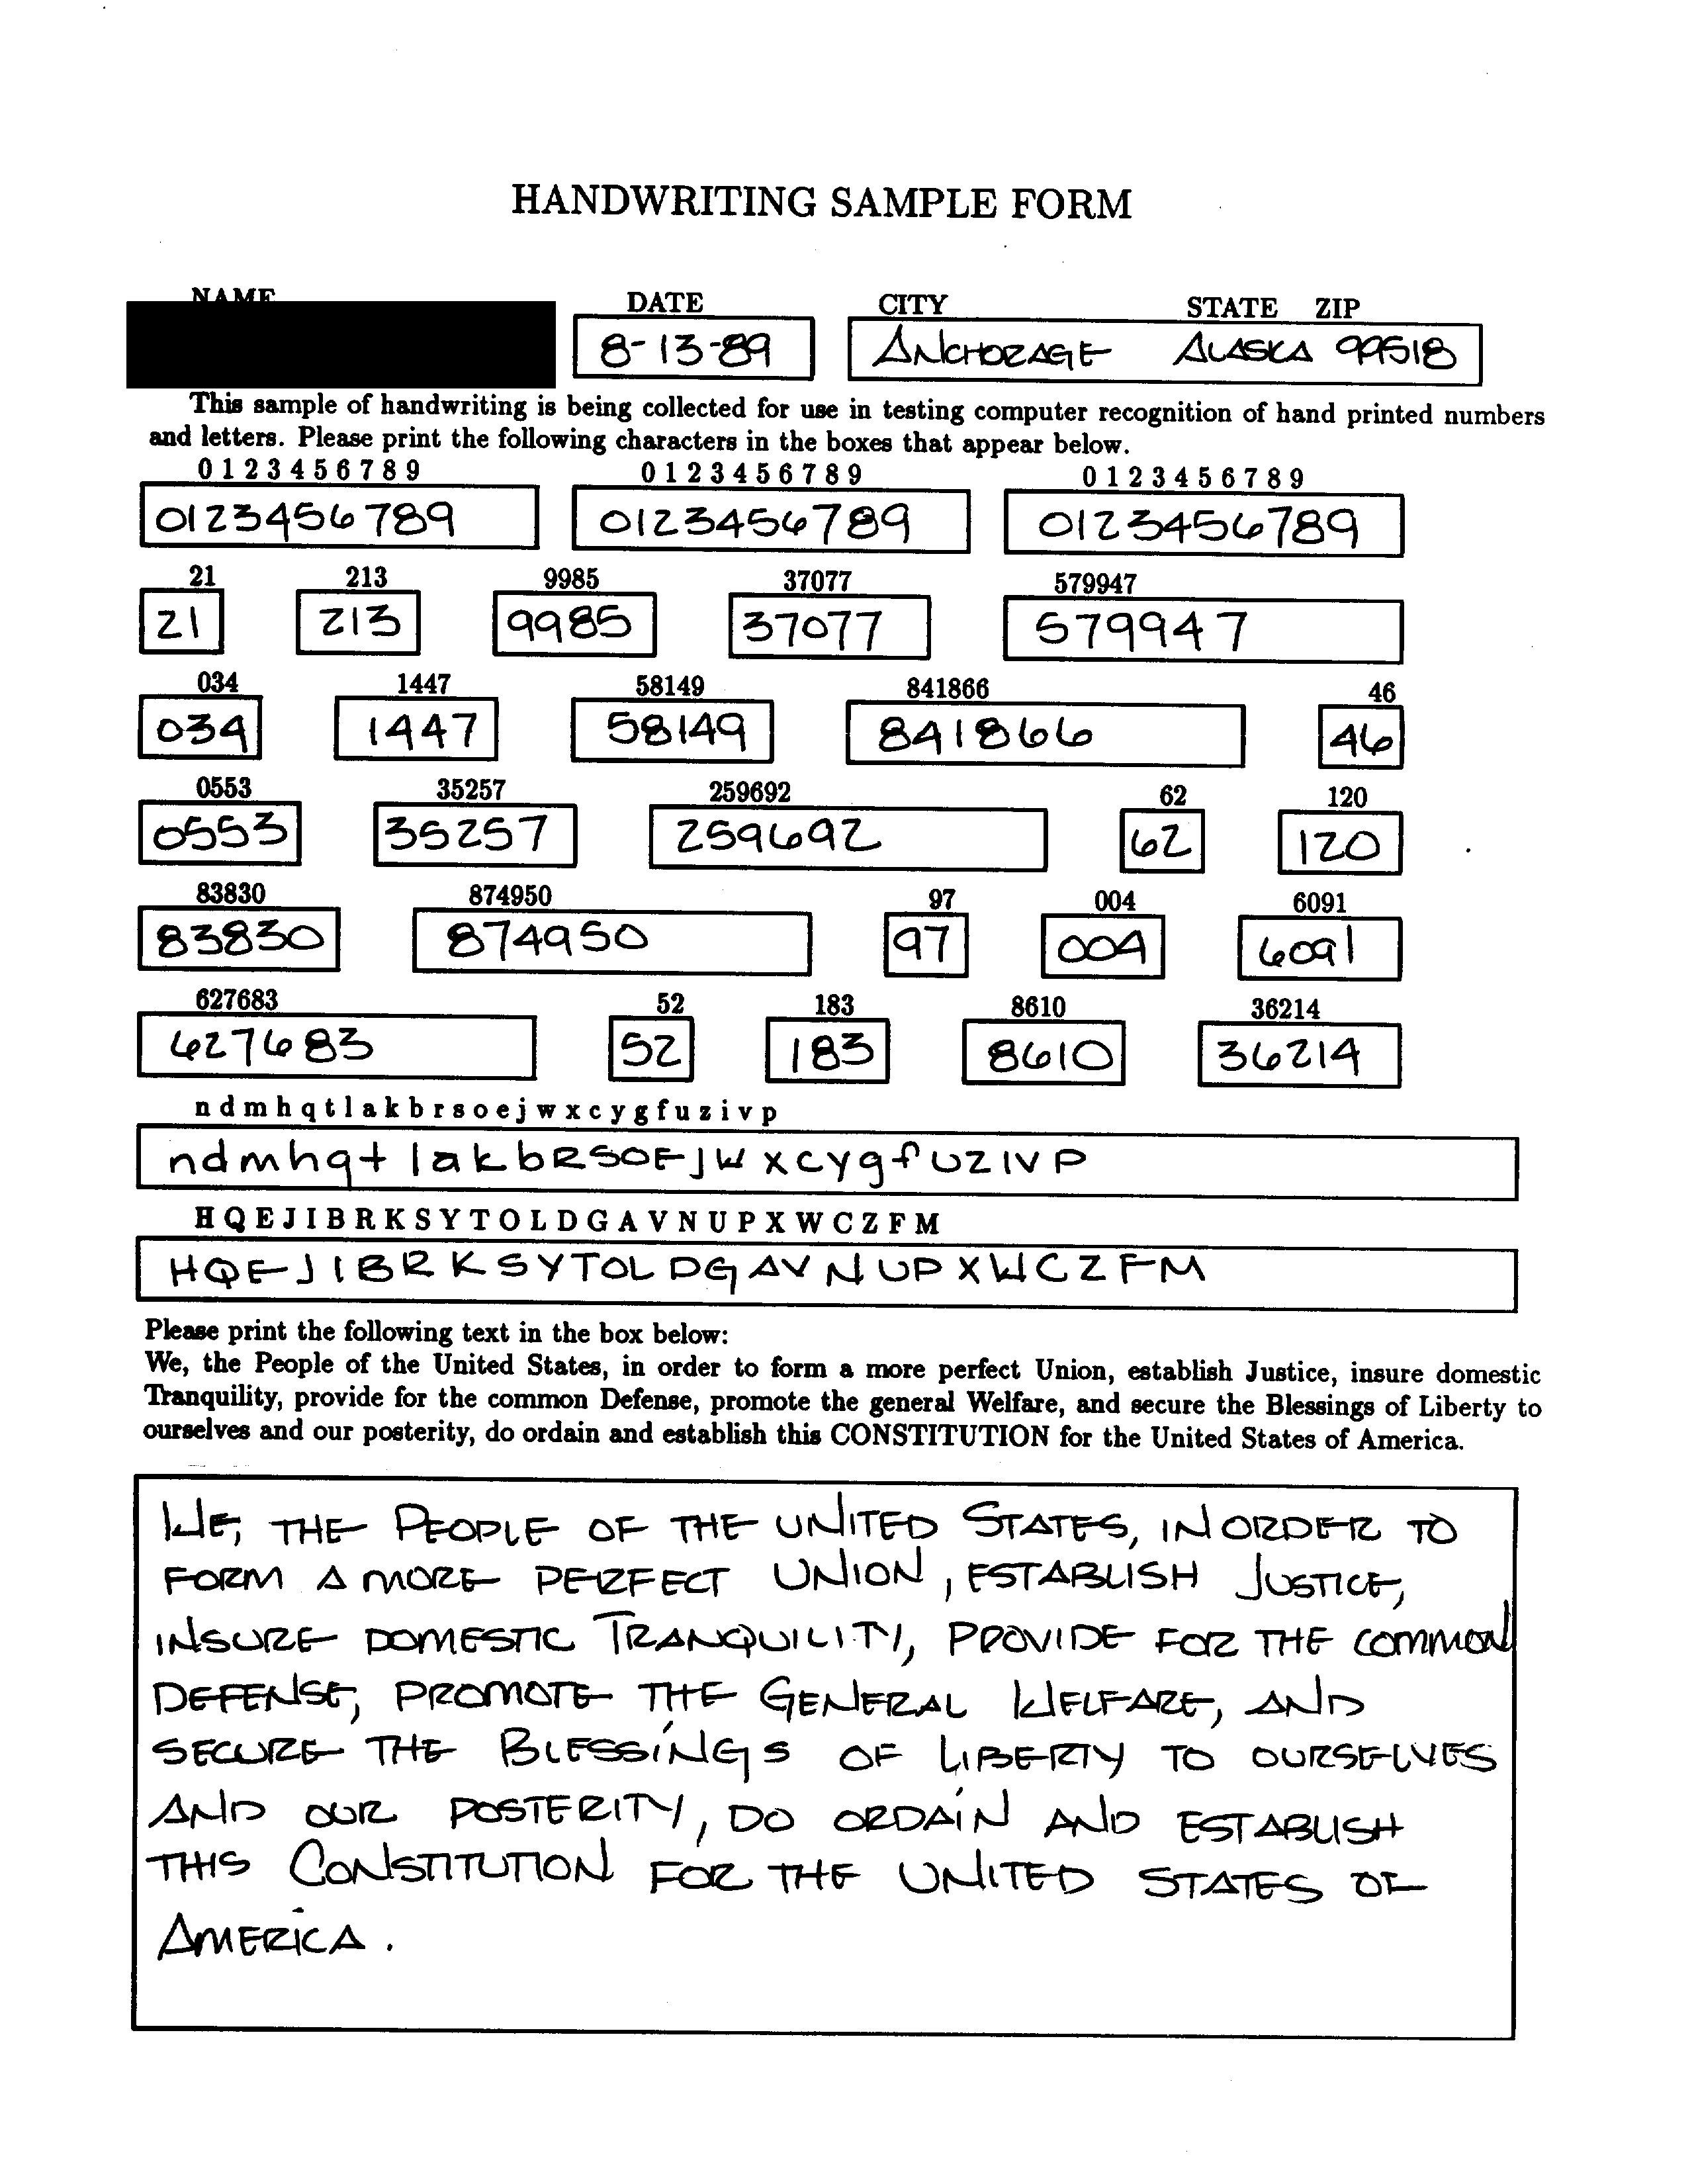 HANDWRITING SAMPLE FORM
NAME DATE CITY STATE ZIP
8-13-89 ANCHORAGE ALASKA 99518
This sample of handwriting is being collected for use in testing computer recognition of hand printed numbers
and letters. Please print the following characters in the boxes that appear below.
0 1 2 3 4 5 6 7 8 9 0 1 2 3 4 5 6 7 8 9 0 1 2 3 4 5 6 7 8 9
0123456789 0123456789 0123456789
21 213 9985 37077 579947
21 213 9985 37077 579947
034 1447 58149 841866 46
034 1447 58149 841866 46
0553 35257 259692 62 120
0553 35257 259692 62 120
83830 874950 97 004 6091
83830 874950 97 004 6091
627683 52 183 8610 36214
627683 52 183 8610 36214
n d m h q t l a k b r s o e j w x c y g f u z i v p
ndmhqtlakbRSOEJWxcygfUZIVP
H Q E J I B R K S Y T O L D G A V N U P X W C Z F M
HQEJIBRKSYTOLDGAVNUPXWCZFM
Please print the following text in the box below:
We, the People of the United States, in order to form a more perfect Union, establish Justice, insure domestic
Tranquility, provide for the common Defense, promote the general Welfare, and secure the Blessings of Liberty to
ourselves and our posterity, do ordain and establish this CONSTITUTION for the United States of America.
WE, THE PEOPLE OF THE UNITED STATES, IN ORDER TO
FORM A MORE PERFECT UNION, ESTABLISH JUSTICE,
INSURE DOMESTIC TRANQUILITY, PROVIDE FOR THE COMMON
DEFENSE, PROMOTE THE GENERAL WELFARE, AND
SECURE THE BLESSINGS OF LIBERTY TO OURSELVES
AND OUR POSTERITY, DO ORDAIN AND ESTABLISH
THIS CONSTITUTION FOR THE UNITED STATES OF
AMERICA.